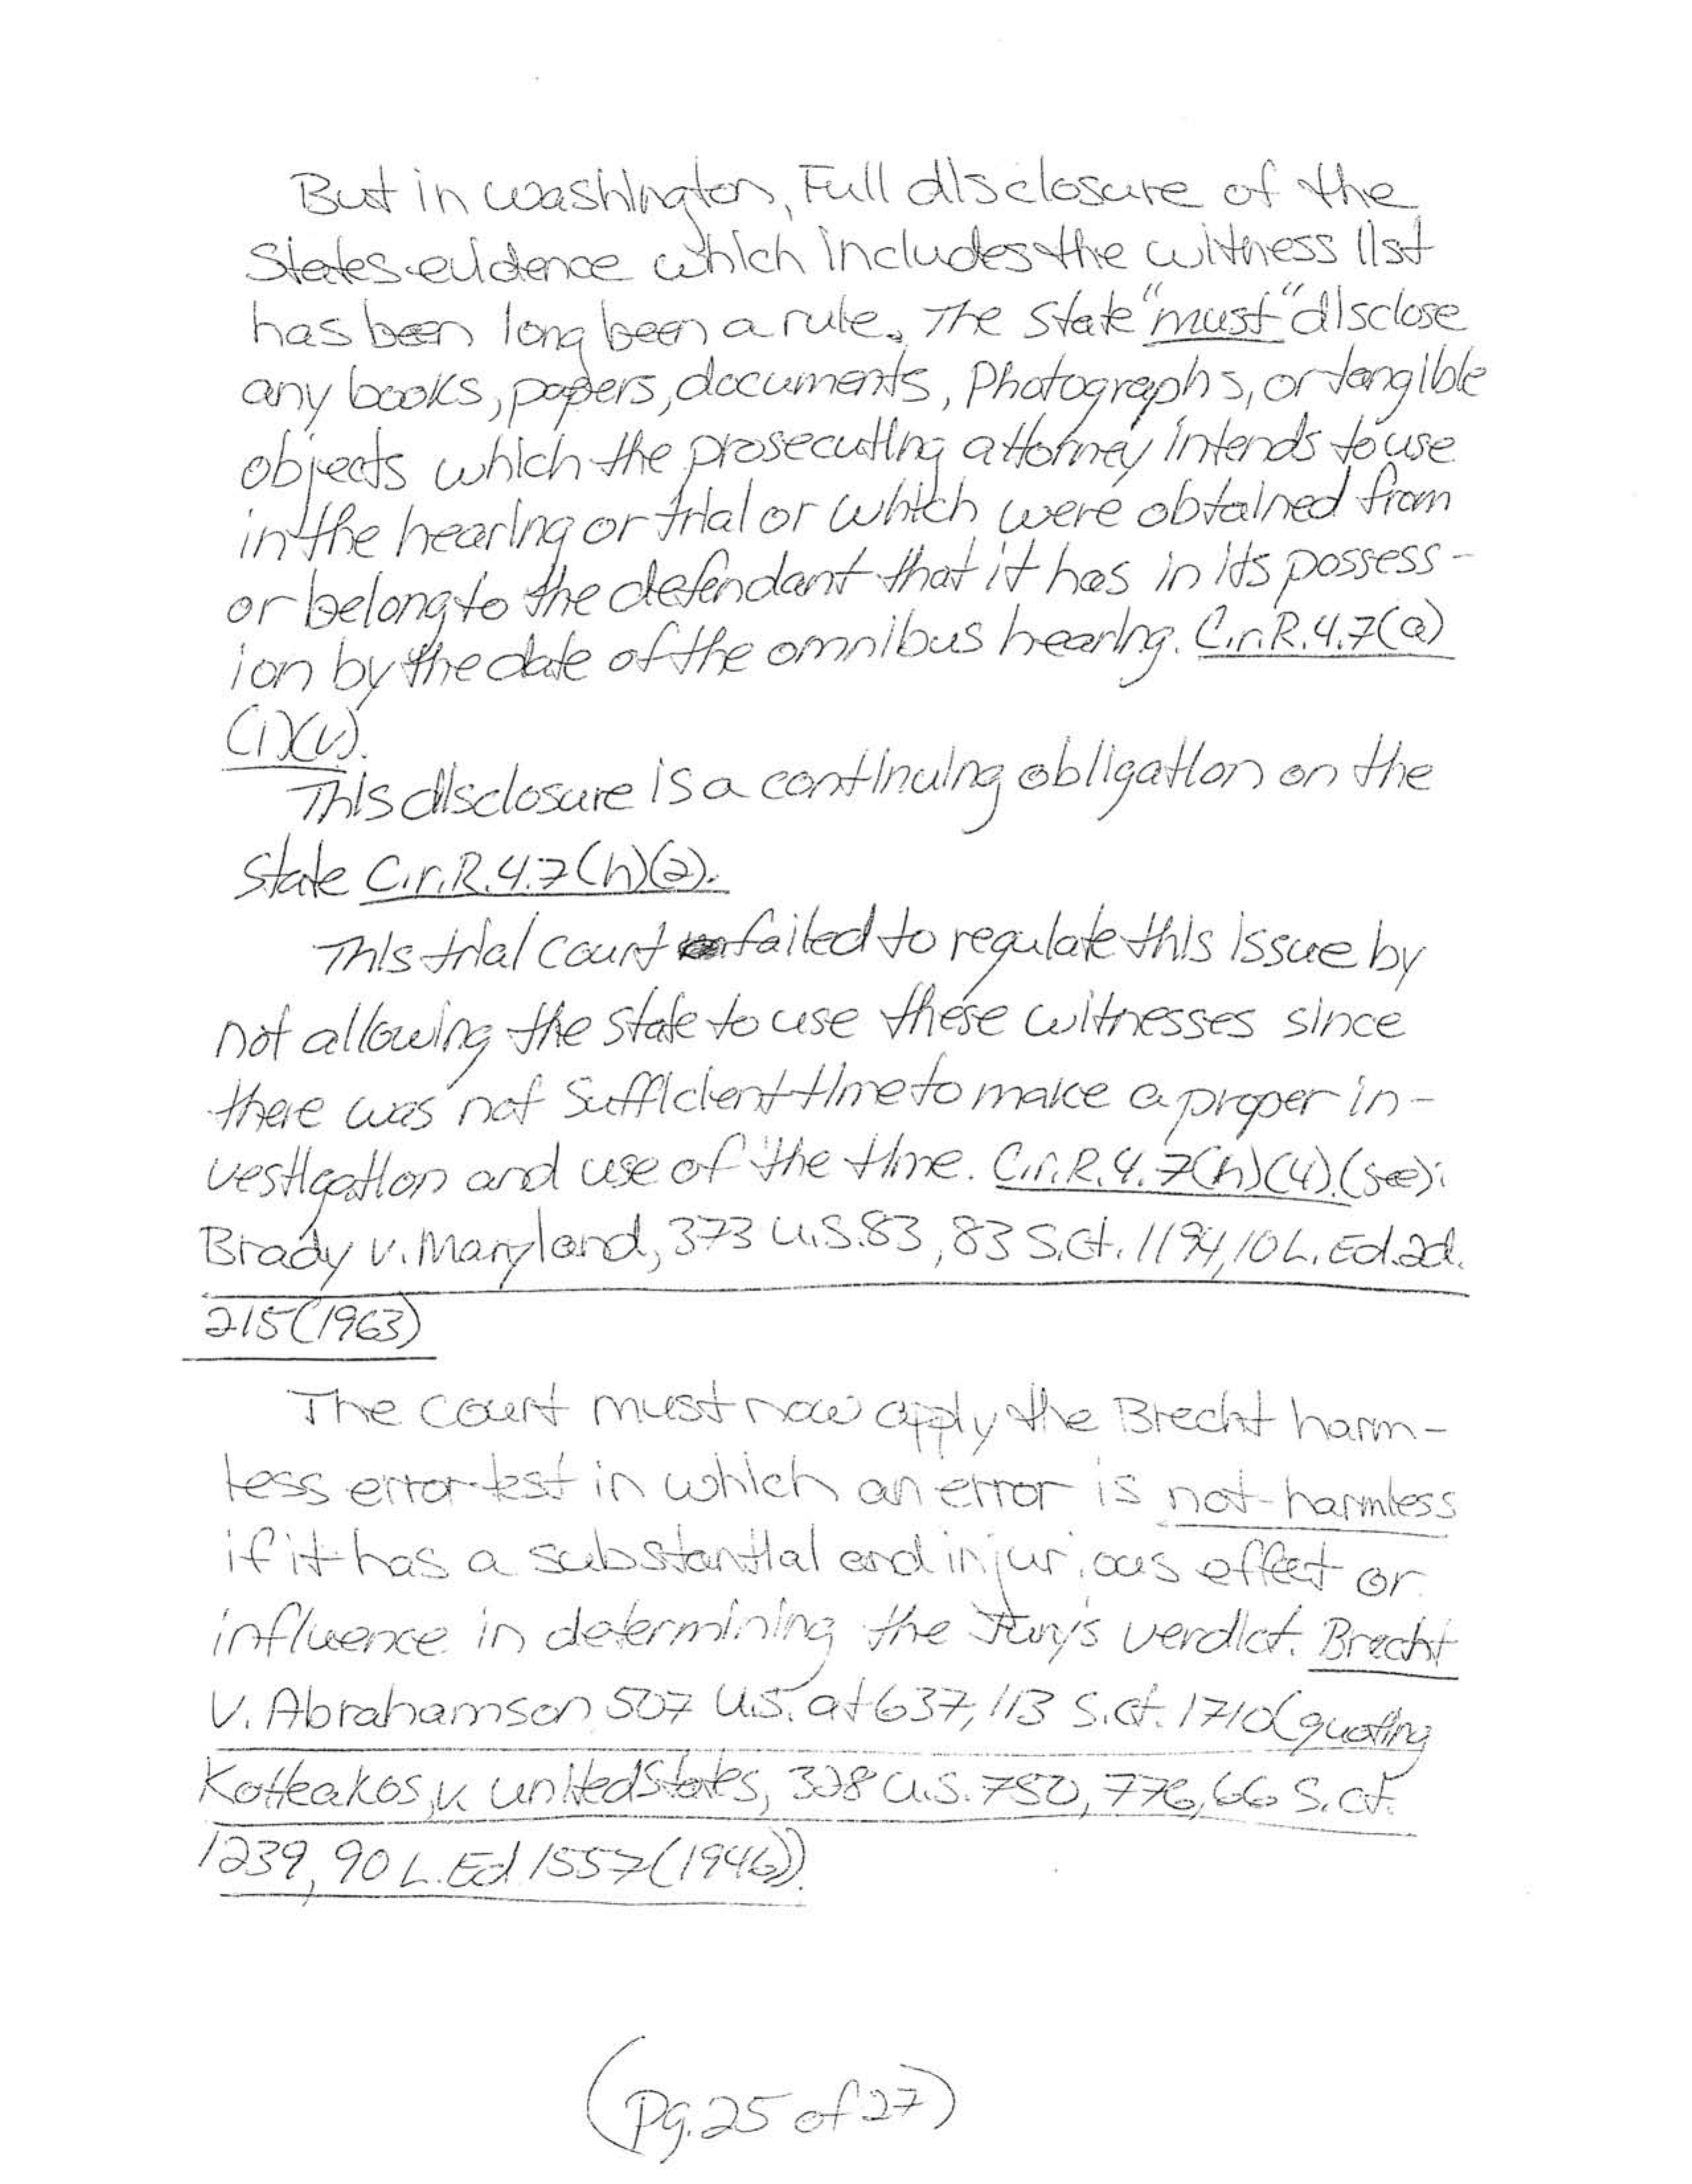 But in washington, Full disclosure of the
States evidence which includes the witness list
has been long been a rule. The State "must" disclose
any books, papers, documents, Photographs, or tangible
objects which the prosecuting attorney intends to use
in the hearing or trial or which were obtained from
or belong to the defendant that it has in its possess-
ion by the date of the omnibus hearing. C.r.R.4.7(a)
(1)(v).
This disclosure is a continuing obligation on the
State C.r.R.4.7(h)(2).
This trial court failed to regulate this issue by
not allowing the state to use these witnesses since
there was not sufficient time to make a proper in-
vestigation and use of the time. C.r.R.4.7(h)(4).(see):
Brady v. Maryland, 373 U.S.83, 83 S.ct. 1194, 10 L. Ed.2d.
215(1963)
The court must now apply the Brecht harm-
less error test in which an error is not harmless
if it has a substantial and injurious effect or
influence in determining the Jury's verdict. Brecht
V. Abrahamson 507 U.S. at 637, 113 S.ct. 1710(quoting
Kotteakos v. united States, 328 U.S. 750, 776, 66 S. ct.
1239, 90 L. Ed 1557(1946)).
(Pg. 25 of 27)